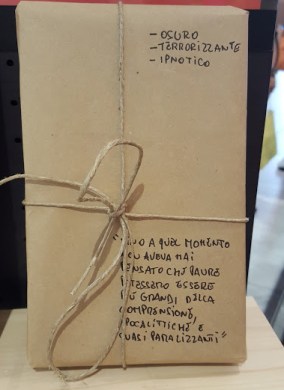 - OSCURO
- TERRORIZZANTE
- IPNOTICO
A QUEL MOMENTO
AVEVA MAI
PENSATO CHE PAURE
POTESSERO ESSERE
PIÙ GRANDI DELLA
COMPRENSIONE,
APOCALITTICHE E
QUASI PARALIZZANTI"